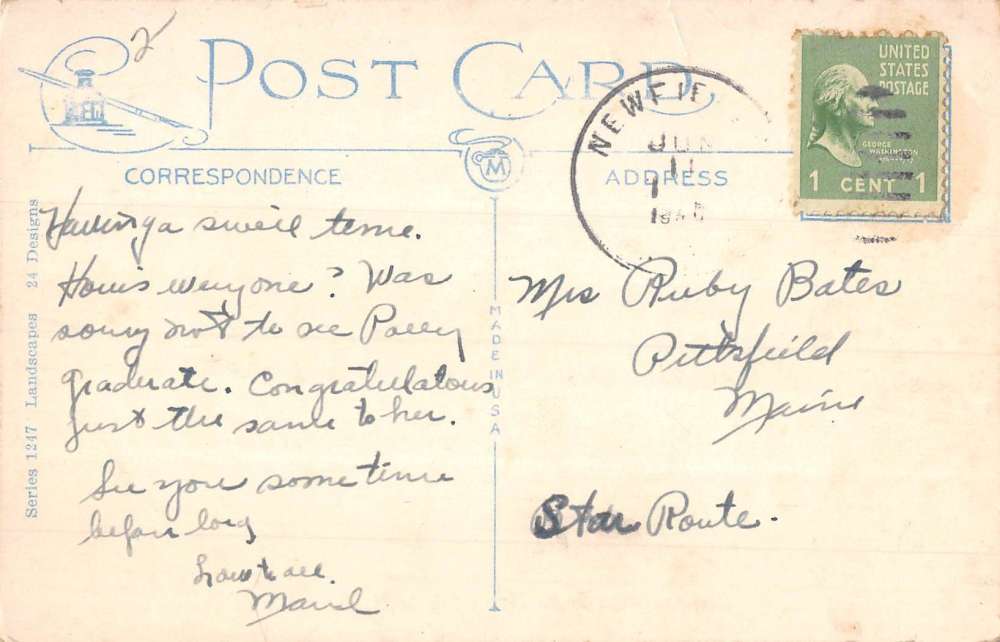 2
POST CARD
CORRESPONDENCE
M
ADDRESS
NEWFIE
JUN
11
1
194
UNITED
STATES
POSTAGE
GEORGE
WASHINGTON
1 CENT 1
Series 1247 Landscapes 24 Designs
MADE IN USA
Having a swell time.
How's everyone? Was
sorry not to see Polly
graduate. Congratulations
just the same to her.
See you sometime
before long
Love to all.
Mrs Ruby Bates
Pittsfield
Maine
Star Route.